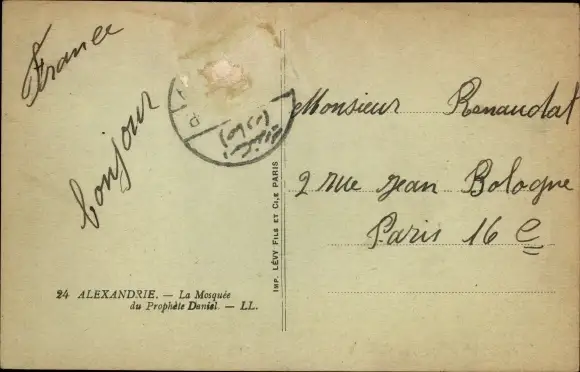 France
bonjour
Monsieur Renaudat
2 rue Jean Bologne
Paris 16 e
IMP. LÉVY FILS ET CIE PARIS
24 ALEXANDRIE. — La Mosquée
du Prophète Daniel. — LL.